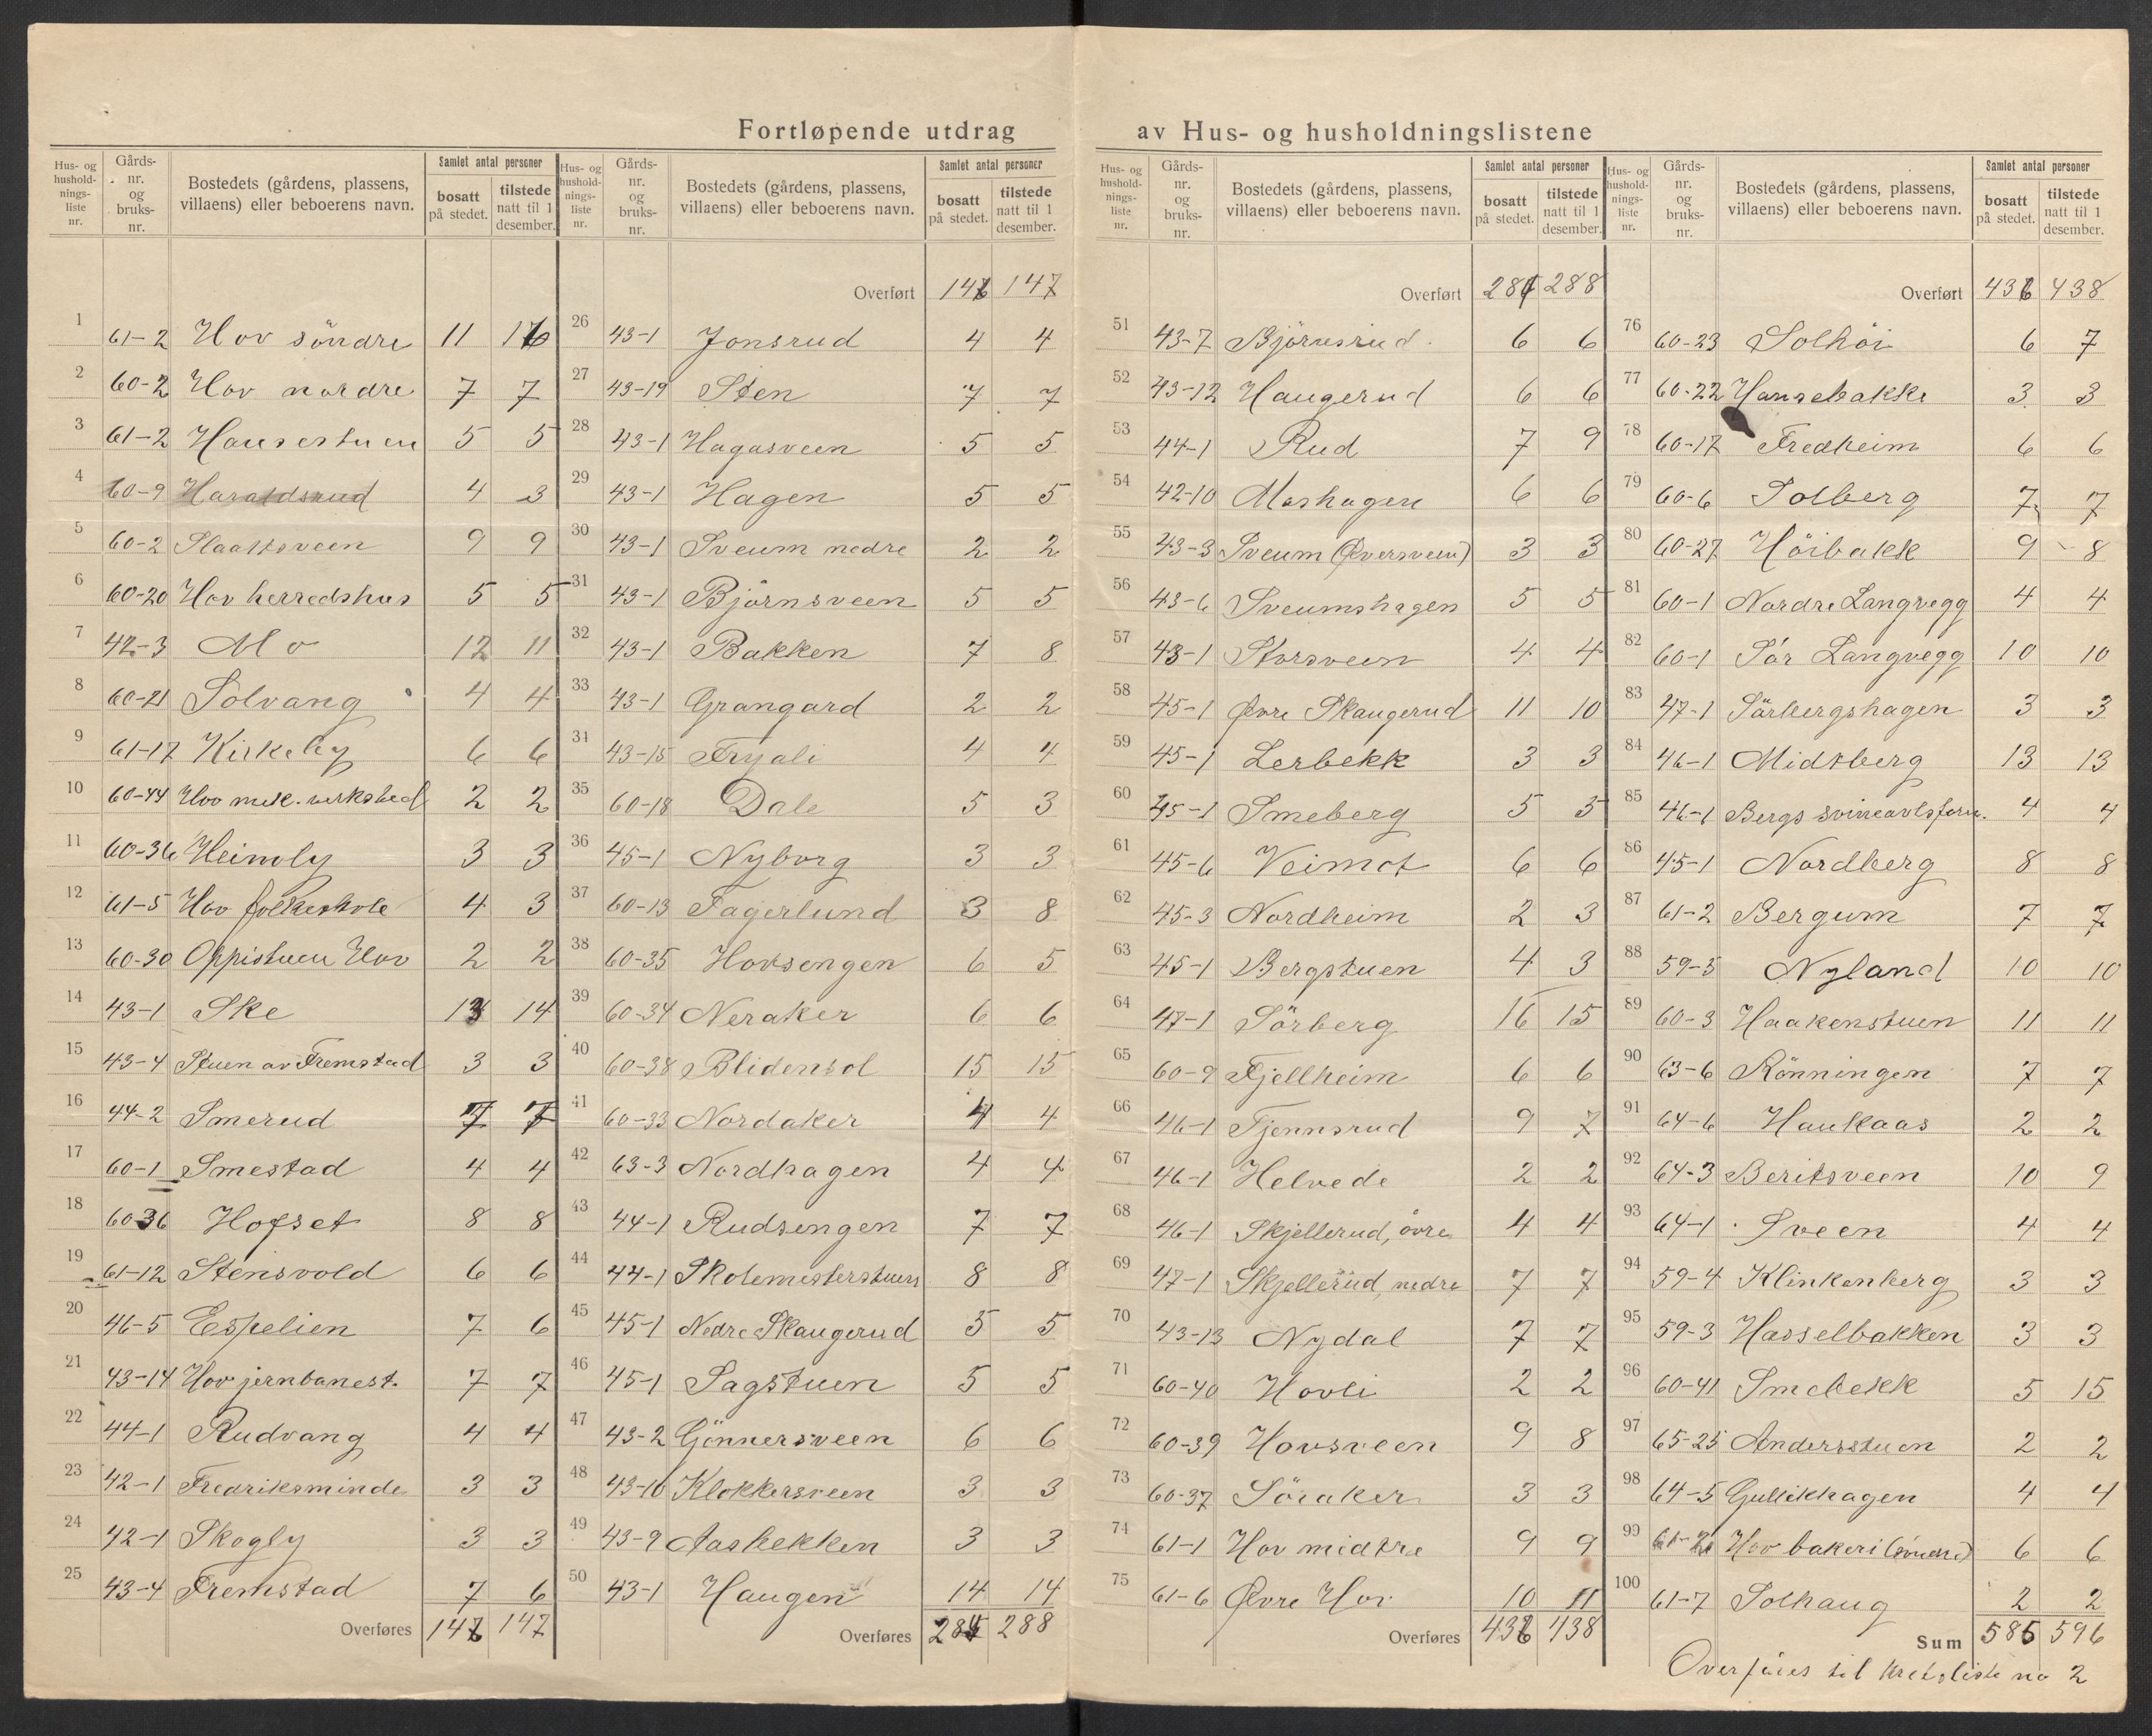 Fortløpende utdrag av Hus- og husholdningslistene
Hus- og husholdnings-liste nr. | Gårds-nr. og bruks-nr. | Bostedets (gårdens, plassens, villaens) eller beboerens navn. | Samlet antal personer bosatt på stedet. | tilstede natt til 1 desember.
1 61-2 Hov søndre 11 16
2 60-2 Hov nordre 7 7
3 61-2 Hansestuen 5 5
4 60-9 Haraldsrud 4 3
5 60-2 Slaattsveen 9 9
6 60-20 Hov herredshus 5 5
7 42-3 Mo 12 11
8 60-21 Solvang 4 4
9 61-17 Kirkeby 6 6
10 60-44 Hov mek. verksted 2 2
11 60-36 Heimly 3 3
12 61-5 Hov folkeskole 4 3
13 60-30 Oppistuen Hov 2 2
14 43-1 Ske 13 14
15 43-4 Stuen av Fremstad 3 3
16 44-2 Smerud 7 7
17 60-1 Smestad 4 4
18 6036 Hofset 8 8
19 61-12 Stensvold 6 6
20 46-5 Espelien 7 6
21 43-14 Hov jernbanest. 7 7
22 44-1 Rudvang 4 4
23 42-1 Fredriksminde 3 3
24 42-1 Skogly 3 3
25 43-4 Fremstad 7 6
Overføres 146 147
Hus- og husholdnings-liste nr. | Gårds-nr. og bruks-nr. | Bostedets (gårdens, plassens, villaens) eller beboerens navn. | Samlet antal personer bosatt på stedet. | tilstede natt til 1 desember.
Overført 146 147
26 43-1 Jonsrud 4 4
27 43-19 Sten 7 7
28 43-1 Hagasveen 5 5
29 43-1 Hagen 5 5
30 43-1 Sveum nedre 2 2
31 43-1 Bjørnsveen 5 5
32 43-1 Bakken 7 8
33 43-1 Grangard 2 2
34 43-15 Fryali 4 4
35 60-18 Dale 5 3
36 45-1 Nyborg 3 3
37 60-13 Fagerlund 3 8
38 60-35 Hovsengen 6 5
39 60-34 Neraker 6 6
40 60-38 Blidensol 15 15
41 60-33 Nordaker 4 4
42 63-3 Nordhagen 4 4
43 44-1 Rudsengen 7 7
44 44-1 Skolemesterstuen 8 8
45 45-1 Nedre Skaugerud 5 5
46 45-1 Sagstuen 5 5
47 43-2 Gjønnersveen 6 6
48 43-16 Klokkersveen 3 3
49 43-9 Aasbekken 3 3
50 43-1 Haugen 14 14
Overføres 284 288
Hus- og husholdnings-liste nr. | Gårds-nr. og bruks-nr. | Bostedets (gårdens, plassens, villaens) eller beboerens navn. | Samlet antal personer bosatt på stedet. | tilstede natt til 1 desember.
Overført 284 288
51 43-7 Bjørnsrud 6 6
52 43-12 Haugerud 6 6
53 44-1 Rud 7 9
54 42-10 Moshagen 6 6
55 43-3 Sveum (Øversveen) 3 3
56 43-6 Sveumshagen 5 5
57 43-1 Storsveen 4 4
58 45-1 Øvre Skaugerud 11 10
59 45-1 Lerbekk 3 3
60 45-1 Smeberg 5 5
61 45-6 Veimot 6 6
62 45-3 Nordheim 2 3
63 45-1 Bergstuen 4 3
64 47-1 Sørberg 16 15
65 60-9 Fjellheim 6 6
66 46-1 Tjennsrud 9 7
67 46-1 Helvede 2 2
68 46-1 Skjellerud, øvre 4 4
69 47-1 Skjellerud, nedre 7 7
70 43-13 Nydal 7 7
71 60-40 Hovli 2 2
72 60-39 Hovsveen 9 8
73 60-37 Söraker 3 3
74 61-1 Hov midtre 9 9
75 61-6 Øvre Hov 10 11
Overføres 436 438
Hus- og husholdnings-liste nr. | Gårds-nr. og bruks-nr. | Bostedets (gårdens, plassens, villaens) eller beboerens navn. | Samlet antal personer bosatt på stedet. | tilstede natt til 1 desember.
Overført 436 438
76 60-23 Solhöi 6 7
77 60-22 Hansebakke 3 3
78 60-17 Fredheim 6 6
79 60-6 Solberg 7 7
80 60-27 Höibakk 9 8
81 60-1 Nordre Langvegg 4 4
82 60-1 Sör Langvegg 10 10
83 47-1 Sørbergshagen 3 3
84 46-1 Midtberg 13 13
85 46-1 Bergs svineavlsforn. 4 4
86 45-1 Nordberg 8 8
87 61-2 Bergum 7 7
88 59-5 Nyland 10 10
89 60-3 Haakenstuen 11 11
90 63-6 Rönningen 7 7
91 64-6 Haukaas 2 2
92 64-3 Beritsveen 10 9
93 64-1 Sveen 4 4
94 59-4 Klinkenberg 3 3
95 59-3 Hasselbakken 3 3
96 60-41 Smebekk 5 15
97 65-25 Andersstuen 2 2
98 64-5 Gullikhagen 4 4
99 61-2 Hov bakeri (søndre) 6 6
100 61-7 Solhaug 2 2
Sum 585 596
Overføres til kretsliste no 2